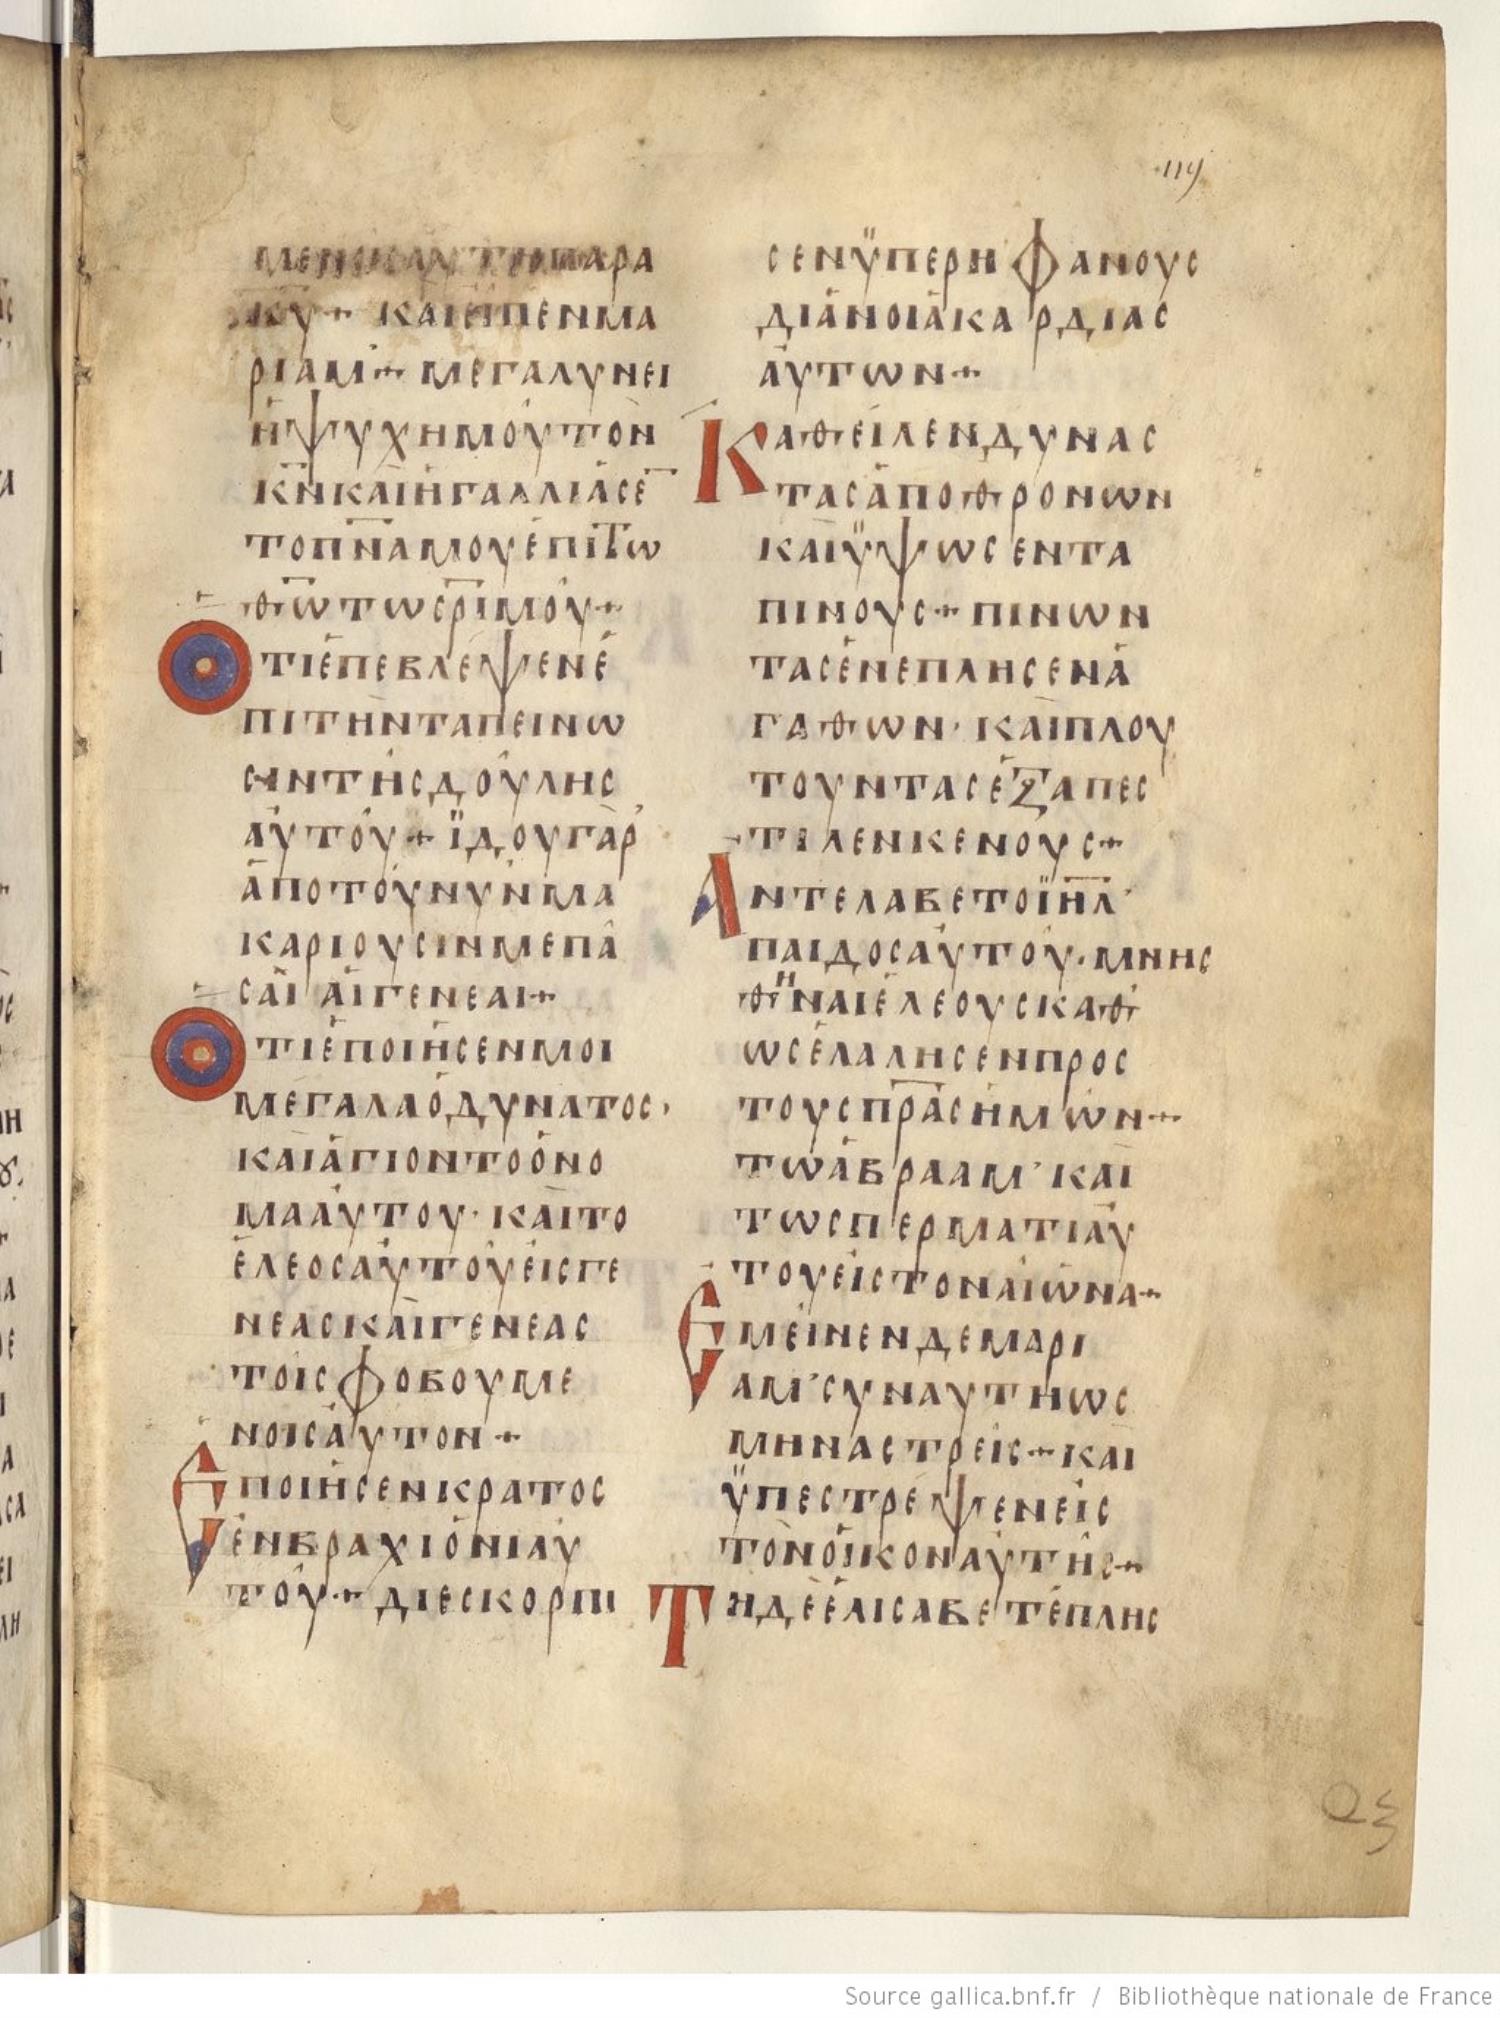 119
ΜΕΝΟΙΣΑΥΤΗΠΑΡΑ
ΚΥ+ ΚΑΙΕΙΠΕΝΜΑ
ΡΙΑΜ+ ΜΕΓΑΛΥΝΕΙ
ΗΨΥΧΗΜΟΥΤΟΝ
ΚΝΚΑΙΗΓΑΛΛΙΑΣΕ
ΤΟΠΝΑΜΟΥΕΠΙΤΩ
ΘΩΤΩΣΡΙΜΟΥ+
ΟΤΙΕΠΕΒΛΕΨΕΝΕ
ΠΙΤΗΝΤΑΠΕΙΝΩ
ΣΙΝΤΗΣΔΟΥΛΗΣ
ΑΥΤΟΥ+ ΪΔΟΥΓΑΡ
ΑΠΟΤΟΥΝΥΝΜΑ
ΚΑΡΙΟΥΣΙΝΜΕΠΑ
ΣΑΙ ΑΙΓΕΝΕΑΙ+
ΟΤΙΕΠΟΙΗΣΕΝΜΟΙ
ΜΕΓΑΛΑΟΔΥΝΑΤΟΣ·
ΚΑΙΑΓΙΟΝΤΟΟΝΟ
ΜΑΑΥΤΟΥ· ΚΑΙΤΟ
ΕΛΕΟΣΑΥΤΟΥΕΙΣΓΕ
ΝΕΑΣΚΑΙΓΕΝΕΑΣ
ΤΟΙΣΦΟΒΟΥΜΕ
ΝΟΙΣΑΥΤΟΝ+
ΕΠΟΙΗΣΕΝΚΡΑΤΟΣ
ΕΝΒΡΑΧΙΟΝΙΑΥ
ΤΟΥ+ ΔΙΕΣΚΟΡΠΙ
ΣΕΝΫΠΕΡΗΦΑΝΟΥΣ
ΔΙΑΝΟΙΑΚΑΡΔΙΑΣ
ΑΥΤΩΝ+
ΚΑΘΕΙΛΕΝΔΥΝΑΣ
ΤΑΣΑΠΟΘΡΟΝΩΝ
ΚΑΙΫΨΩΣΕΝΤΑ
ΠΙΝΟΥΣ+ ΠΙΝΩΝ
ΤΑΣΕΝΕΠΛΗΣΕΝΑ
ΓΑΘΩΝ· ΚΑΙΠΛΟΥ
ΤΟΥΝΤΑΣΕΞΑΠΕΣ
ΤΙΛΕΝΚΕΝΟΥΣ+
ΑΝΤΕΛΑΒΕΤΟΪΗΛ
ΠΑΙΔΟΣΑΥΤΟΥ· ΜΝΗΣ
ΘΗΝΑΙΕΛΕΟΥΣΚΑΘ
ΩΣΕΛΑΛΗΣΕΝΠΡΟΣ
ΤΟΥΣΠΡΑΣΗΜΩΝ+
ΤΩΑΒΡΑΑΜ ΚΑΙ
ΤΩΣΠΕΡΜΑΤΙΑΥ
ΤΟΥΕΙΣΤΟΝΑΙΩΝΑ+
ΕΜΕΙΝΕΝΔΕΜΑΡΙ
ΑΜ ΣΥΝΑΥΤΗΩΣ
ΜΗΝΑΣΤΡΕΙΣ+ ΚΑΙ
ΫΠΕΣΤΡΕΨΕΝΕΙΣ
ΤΟΝΟΙΚΟΝΑΥΤΗΣ+
ΤΗΔΕΕΛΙΣΑΒΕΤΕΠΛΗΣ
Source gallica.bnf.fr / Bibliothèque nationale de France